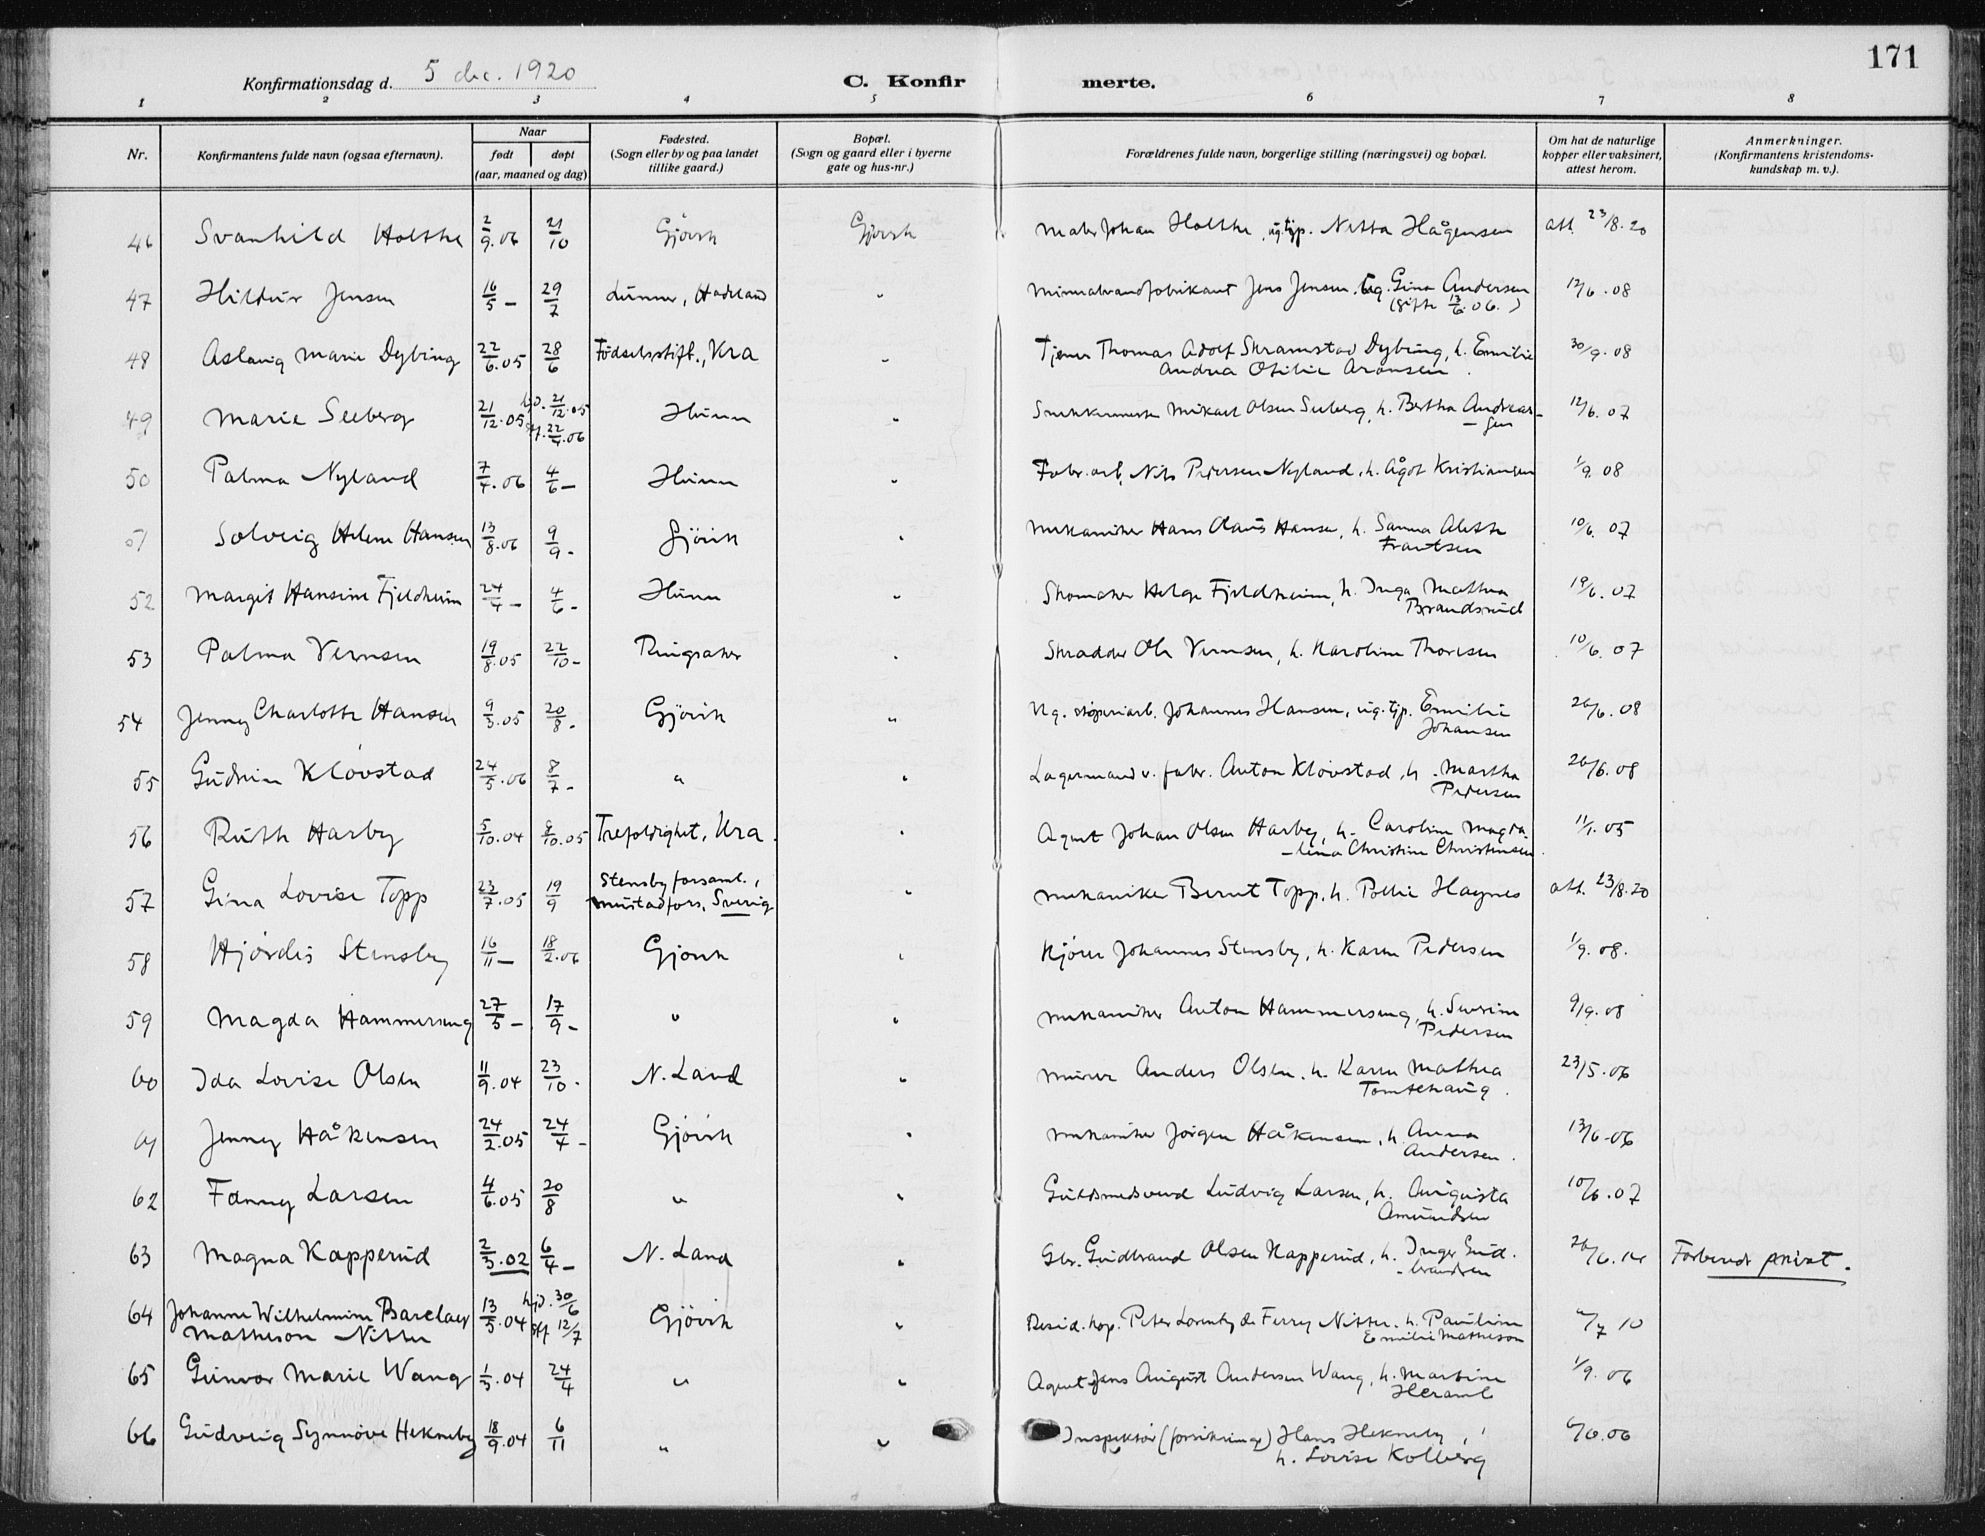 171
Konfirmationsdag d. 5 dec. 1920
C. Konfirmerte.
1 2 3 4 5 6 7 8
Nr. Konfirmantens fulde navn (ogsaa efternavn). Naar født døpt (aar, maaned og dag) Fødested. (Sogn eller by og paa landet tillike gaard.) Bopæl. (Sogn og gaard eller i byerne gate og hus-nr.) Forældrenes fulde navn, borgerlige stilling (næringsvei) og bopæl. Om hat de naturlige kopper eller vaksinert, attest herom. Anmerkninger. (Konfirmantens kristendoms-kundskap m. v.).
46 Svanhild Holthe 2/9.06 21/10 Gjövik Gjövik Maler Johan Holthe, ug. tjp. Netta Hågensen att. 23/8.20
47 Hildur Jensen 16/5 – 29/7 Lunner, Hadeland " Mineralvandfabrikant Jens Jensen, ug. Gina Andersen (gifte 13/6.06.) 12/6.08
48 Aslaug Marie Dybing 22/6.05 28/6 Födselsstift., Kra " Tjener Thomas Adolf Skramstad Dybing, h. Emilie Andrea Otilie Aronsen. 30/9.08
49 Marie Seeberg 21/12.05 hjd. 21/12.05 stf. 22/4.06 Hunn " Snekkermester Mikael Olsen Seeberg, h. Bertha Andreas-sen 12/6.07
50 Palma Nyland 7/4.06 4/6 – Hunn " Fabr. arb. Nils Pedersen Nyland, h. Ågot Kristiansen 1/9.08
51 Solveig Helene Hansen 13/8.06 9/9 – Gjövik " Mekaniker Hans Olaus Hansen, h. Sanna Alette Frantsen 10/6.07
52 Margit Hansine Fjeldheim 24/4 – 4/6 – Hunn " Skomaker Helge Fjeldheim, h. Inga Mathea Brandsrud 19/6.07
53 Palma Vernsen 19/8.05 22/10 – Ringsaker " Skrædder Ole Vernsen, h. Karoline Thoresen 10/6.07
54 Jenny Charlotte Hansen 9/3.05 20/8 – Gjövik " Ug. støperiarb. Johannes Hansen, ug. tjp. Emilie Johansen 26/6.08
55 Gudrun Klövstad 24/5.06 8/7 – " " Lagermand v. fabr. Anton Klövstad, h. Martha Pedersen 26/6.08
56 Ruth Harby 5/10.04 8/10.05 Trefoldighet, Kra. " Agent Johan Olsen Harby, h. Caroline Magda-lena Christine Christensen. 11/1.05
57 Gina Lovise Topp 23/7.05 19/9 Stensby forsaml., Mustadfors, Sverig " Mekaniker Bernt Topp, h. Pollie Haynes att. 23/8.20
58 Hjördis Stensby 16/11 – 18/2.06 Gjövik " Kjörer Johannes Stensby, h. Karen Pedersen 1/9.08.
59 Magda Hammerseng 27/5 – 17/9 – " " Mekaniker Anton Hammerseng, h. Severine Pedersen 9/9.08
60 Ida Lovise Olsen 11/9.04 23/10. N. Land " Murer Anders Olsen. h. Karen Mathea Tomtehaug. 23/5.06
61 Jenny Håkensen 24/2.05 24/4 – Gjövik " Mekaniker Jörgen Håkensen, h. Anna Andersen. 13/6.06
62 Fanny Larsen 4/6.05 20/8 " " Guldsmedsvend Ludvig Larsen, h. Augusta Amundsen 10/6.07
63 Magna Kapperud 2/3.02 6/4 – N. Land " Gbr. Gudbrand Olsen Kapperud, h. Inger Gud-brandsen 26/6.14 Forberedt privat.
64 Johanne Wilhelmine Barclay Matheson Nitter 13/5.04 hjd. 30/6 stf. 12/7 Gjövik " Resid. kap. Peter Lorentz de Ferry Nitter. h. Pauline Emilie Matheson /7 10
65 Gunvor Marie Wang 1/3.04 24/4 " " Agent Jens August Andersen Wang, h. Martine Heramb 1/9.06
66 Gudveig Synnöve Hekneby 18/9.04 6/11 " " Inspektør (forsikring) Hans Hekneby, h. Lovise Kolberg 6/6.06